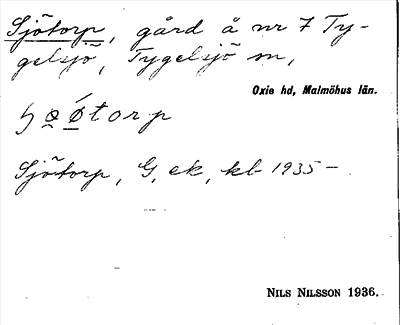 Sjötorp, gård å nr 7 Ty-
gelsjö, Tygelsjö sn,
Oxie hd, Malmöhus län.
Sjötorp, G, ek, kb 1935 –
NILS NILSSON 1936.